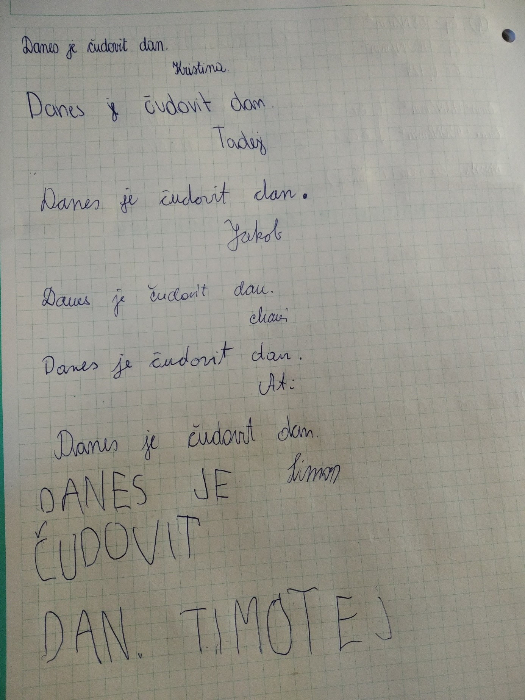 Danes je čudovit dan.
Kristina
Danes je čudovit dan.
Tadej
Danes je čudovit dan.
Jakob
Danes je čudovit dan.
Danes je čudovit dan.
Ati
Danes je čudovit dan.
Simon
DANES JE
ČUDOVIT
DAN. TIMOTEJ